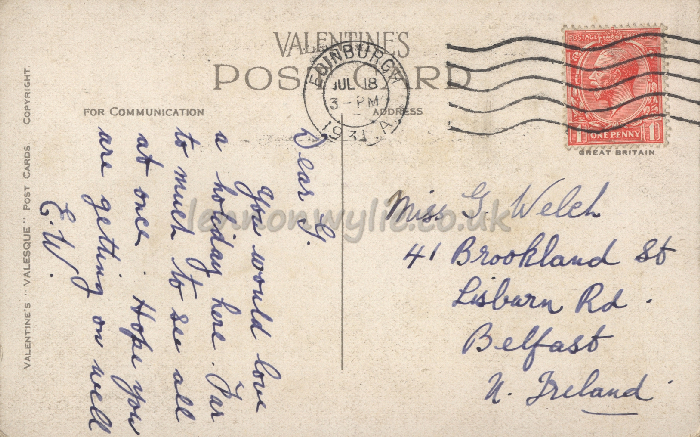 VALENTINE'S
POST CARD
FOR COMMUNICATION
ADDRESS
EDINBURGH
JUL 18
3 - PM
193
A
POSTAGE
ONE PENNY
1
1
GREAT BRITAIN
VALENTINE'S "VALESQUE" POST CARDS COPYRIGHT.
Dear G.
You would love
a holiday here. Far
to much to see all
at once. Hope you
are getting on well
E.W.
Miss G. Welch
41 Brookland St
Lisburn Rd.
Belfast
N. Ireland
lennonwylie.co.uk